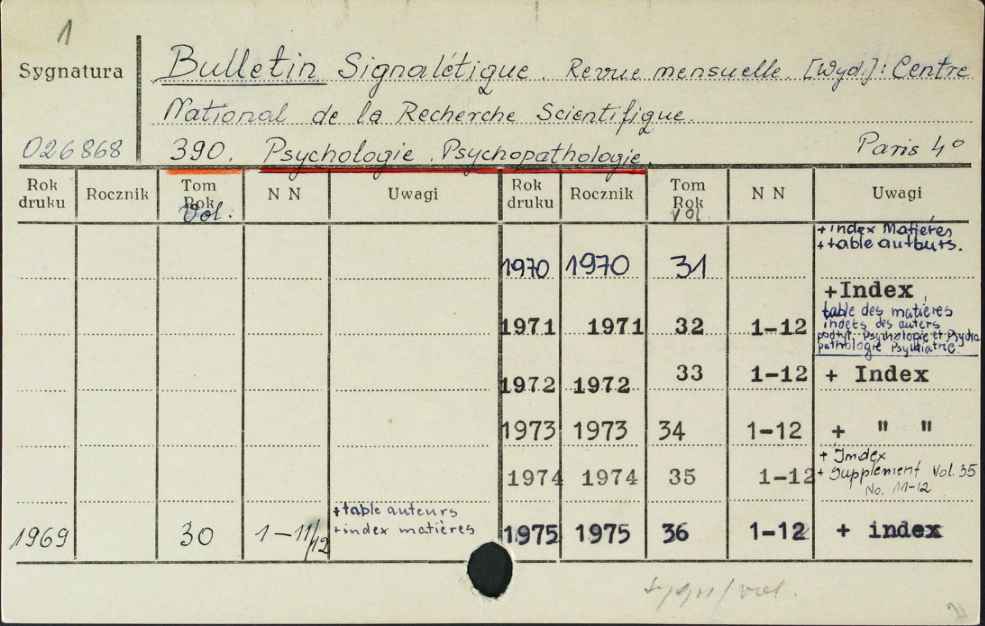 1
Sygnatura
Bulletin Signalétique. Revue mensuelle. [Wyd.]: Centre
National de la Recherche Scientifique.
026868 390. Psychologie. Psychopathologie. Paris 4°
Rok druku Rocznik Tom Rok Vol. N N Uwagi Rok druku Rocznik Tom Rok Vol. N N Uwagi
+ index Matières
+ table auteurs.
1970 1970 31
+Index,
table des matières
indeks des auters
podtyt. Psychologie et Psycho
pathologie Psychiatrie
1971 1971 32 1-12
1972 1972 33 1-12 + Index
1973 1973 34 1-12 + " "
+ Index
1974 1974 35 1-12 + Supplement Vol. 35
No. 11-12
+table auteurs
1969 30 1-11/12 +index matières 1975 1975 36 1-12 + index